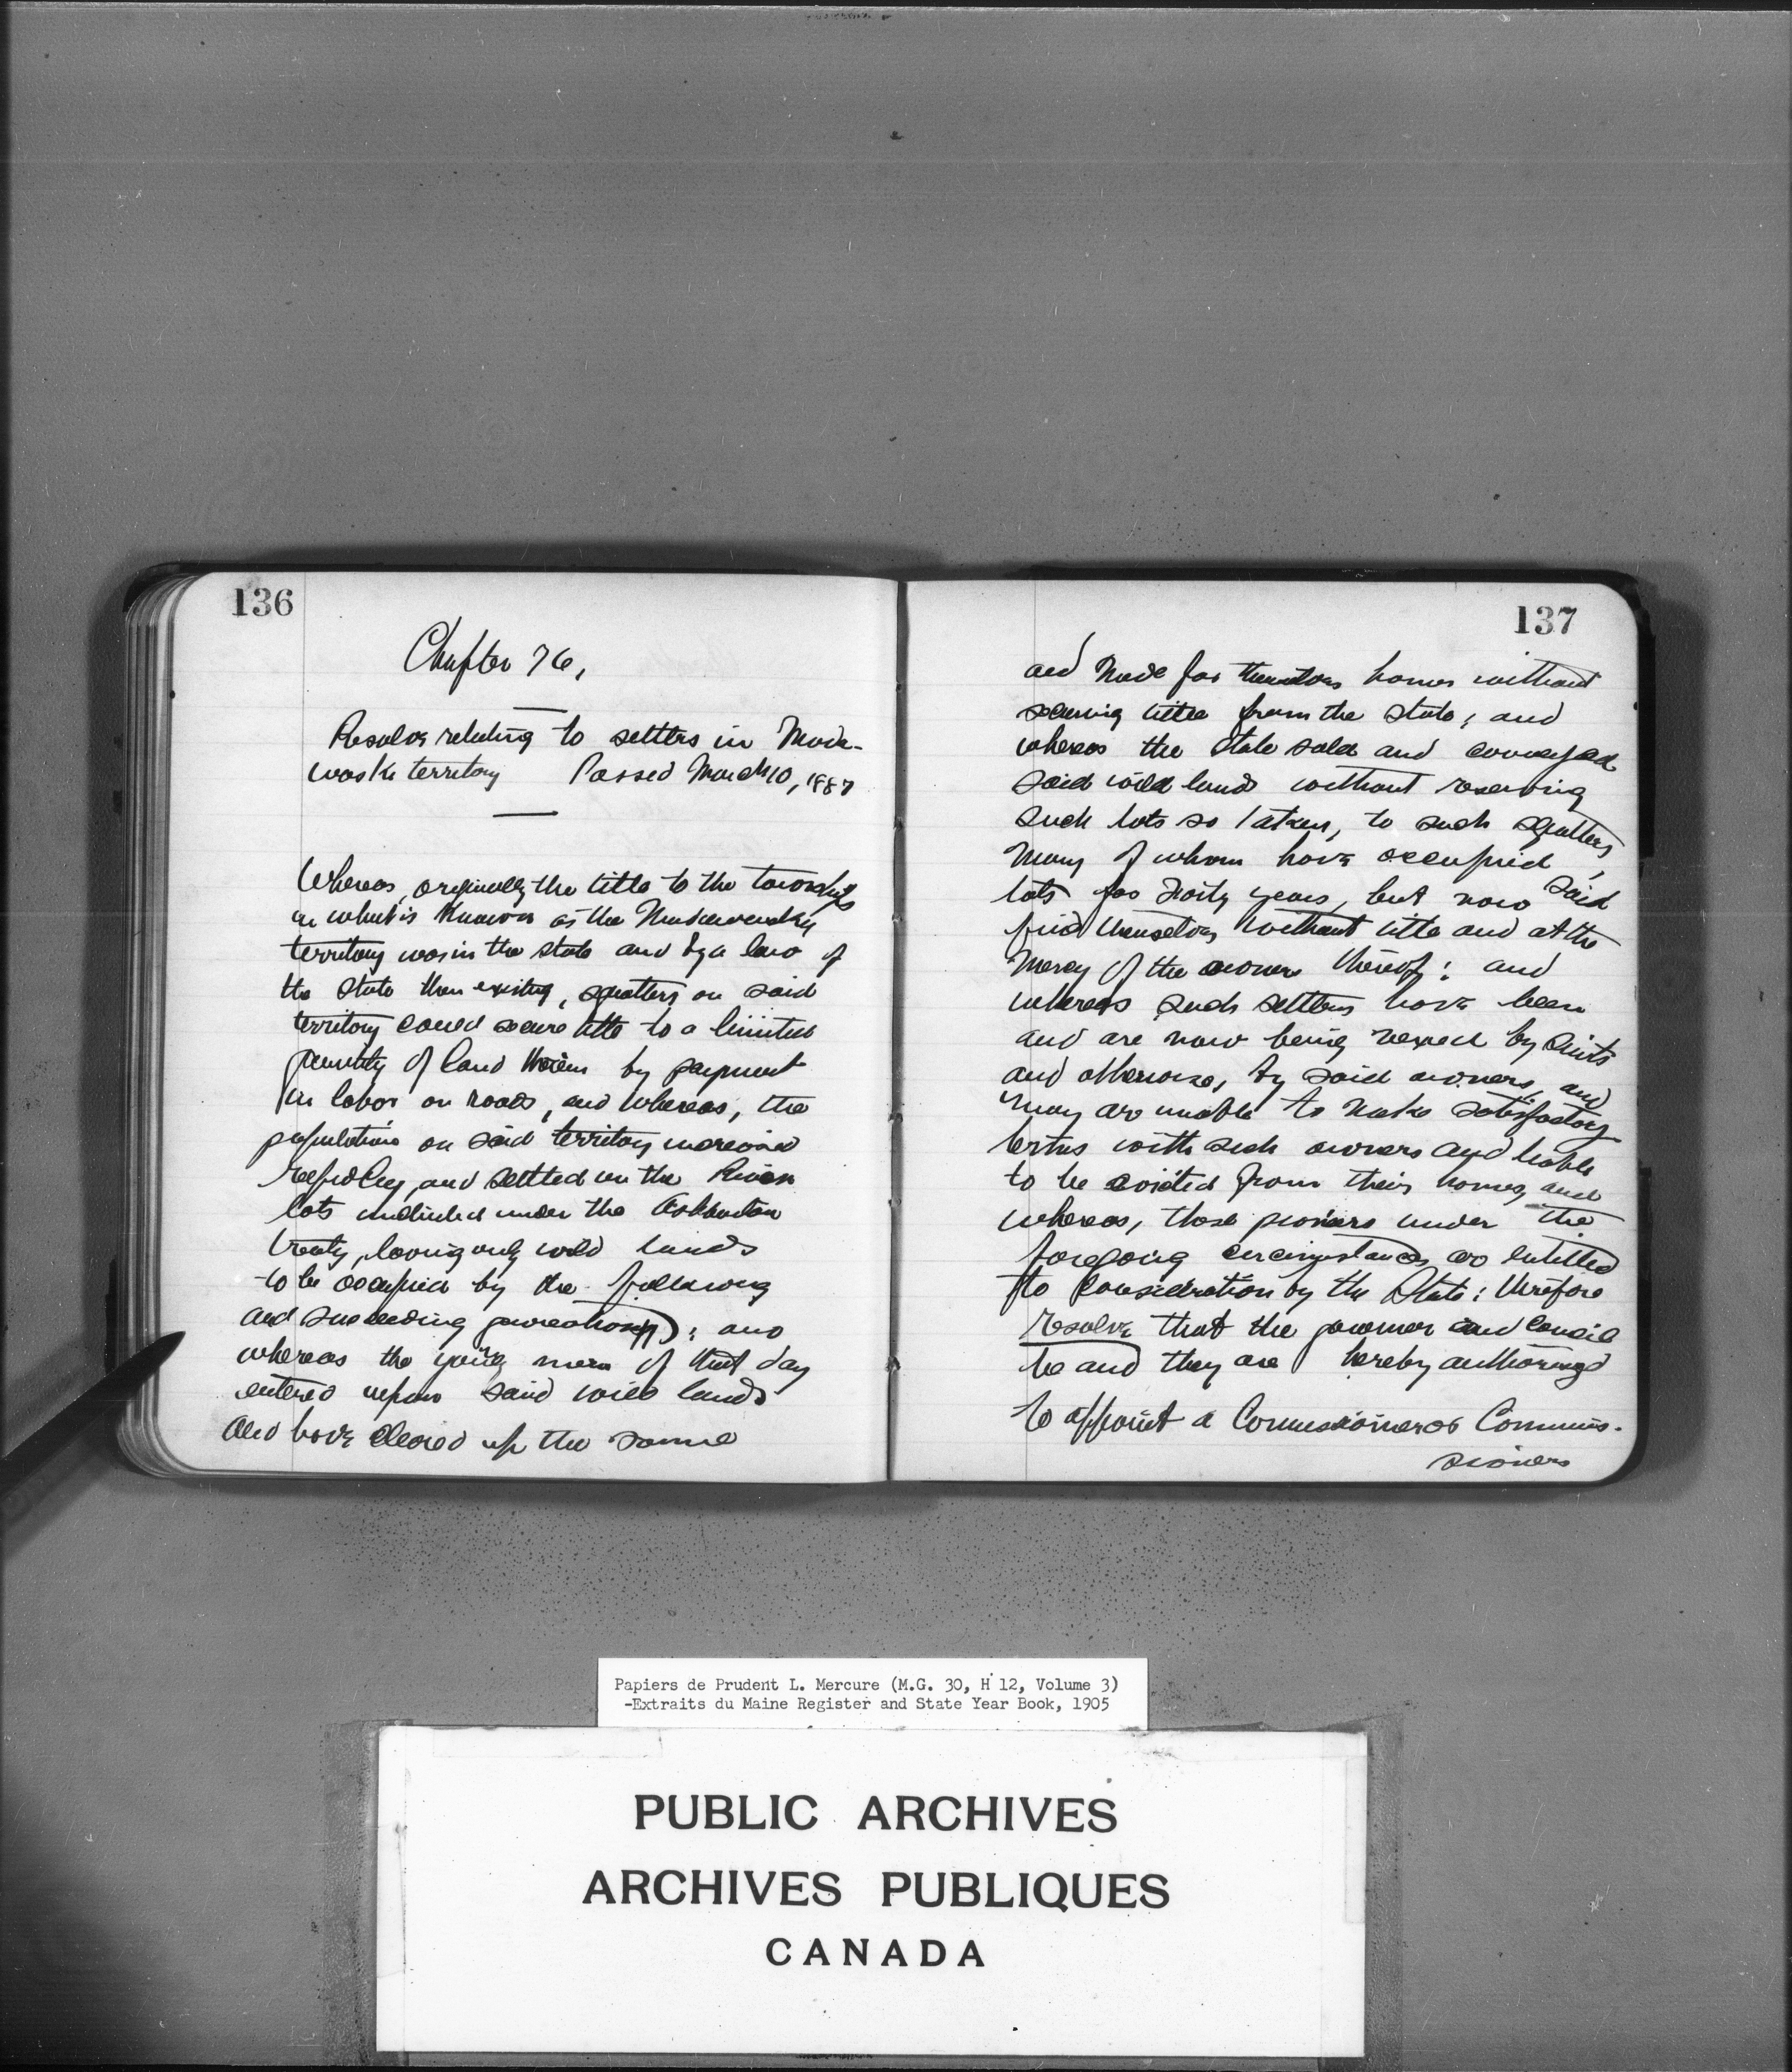 136
Chapter 76,
Resolve relating to settlers in Mada-
waska territory Passed March 10, 1887
Whereas, originally the title to the townships
in what is known as the Madawaska
territory was in the state and by a law of
the State then existing, squatters on said
territory could secure title to a limited
quantity of land therein by payment
in labor on roads, and whereas, the
population on said territory increased
rapidly, and settled on the River
lots included under the Ashburton
treaty, leaving only wild lands
to be occupied by the following
and succeeding generations; and
whereas the young men of that day
entered upon said wild lands
and have cleared up the same
137
and made for themselves homes without
securing title from the state; and
whereas the State sold and conveyed
said wild lands without reserving
such lots so taken, to such squatters,
many of whom have occupied said
lots for forty years, but now
find themselves without title and at the
mercy of the owners thereof: and
whereas such settlers have been
and are now being vexed by suits
and otherwise, by said owners, and
many are unable to make satisfactory
terms with such owners and liable
to be evicted from their homes, and
whereas, those pioneers under the
foregoing circumstances are entitled
to consideration by the State: therefore
resolve that the governor and Council
be and they are hereby authorized
to appoint a Commissioner or Commis-
sioners
Papiers de Prudent L. Mercure (M.G. 30, H 12, Volume 3)
-Extraits du Maine Register and State Year Book, 1905
PUBLIC ARCHIVES
ARCHIVES PUBLIQUES
CANADA